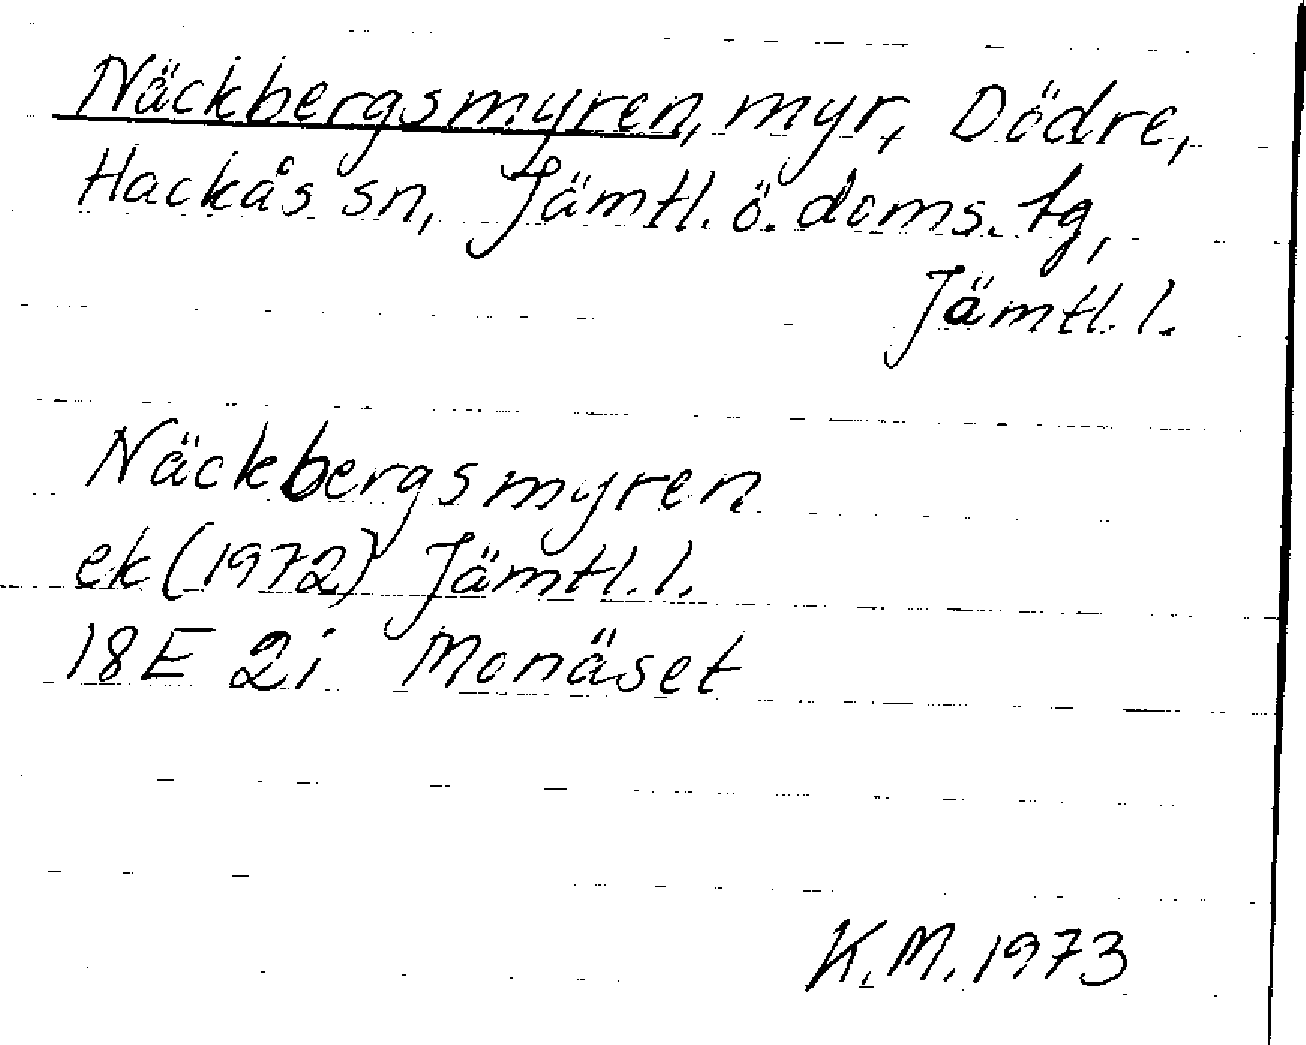 Näckbergsmyren, myr, Dödre,
Hackås sn, Jämtl. ö. doms. tg,
Jämtl. l.
Näckbergsmyren
ek (1972) Jämtl. l.
18E 2i Monäset
K.M. 1973